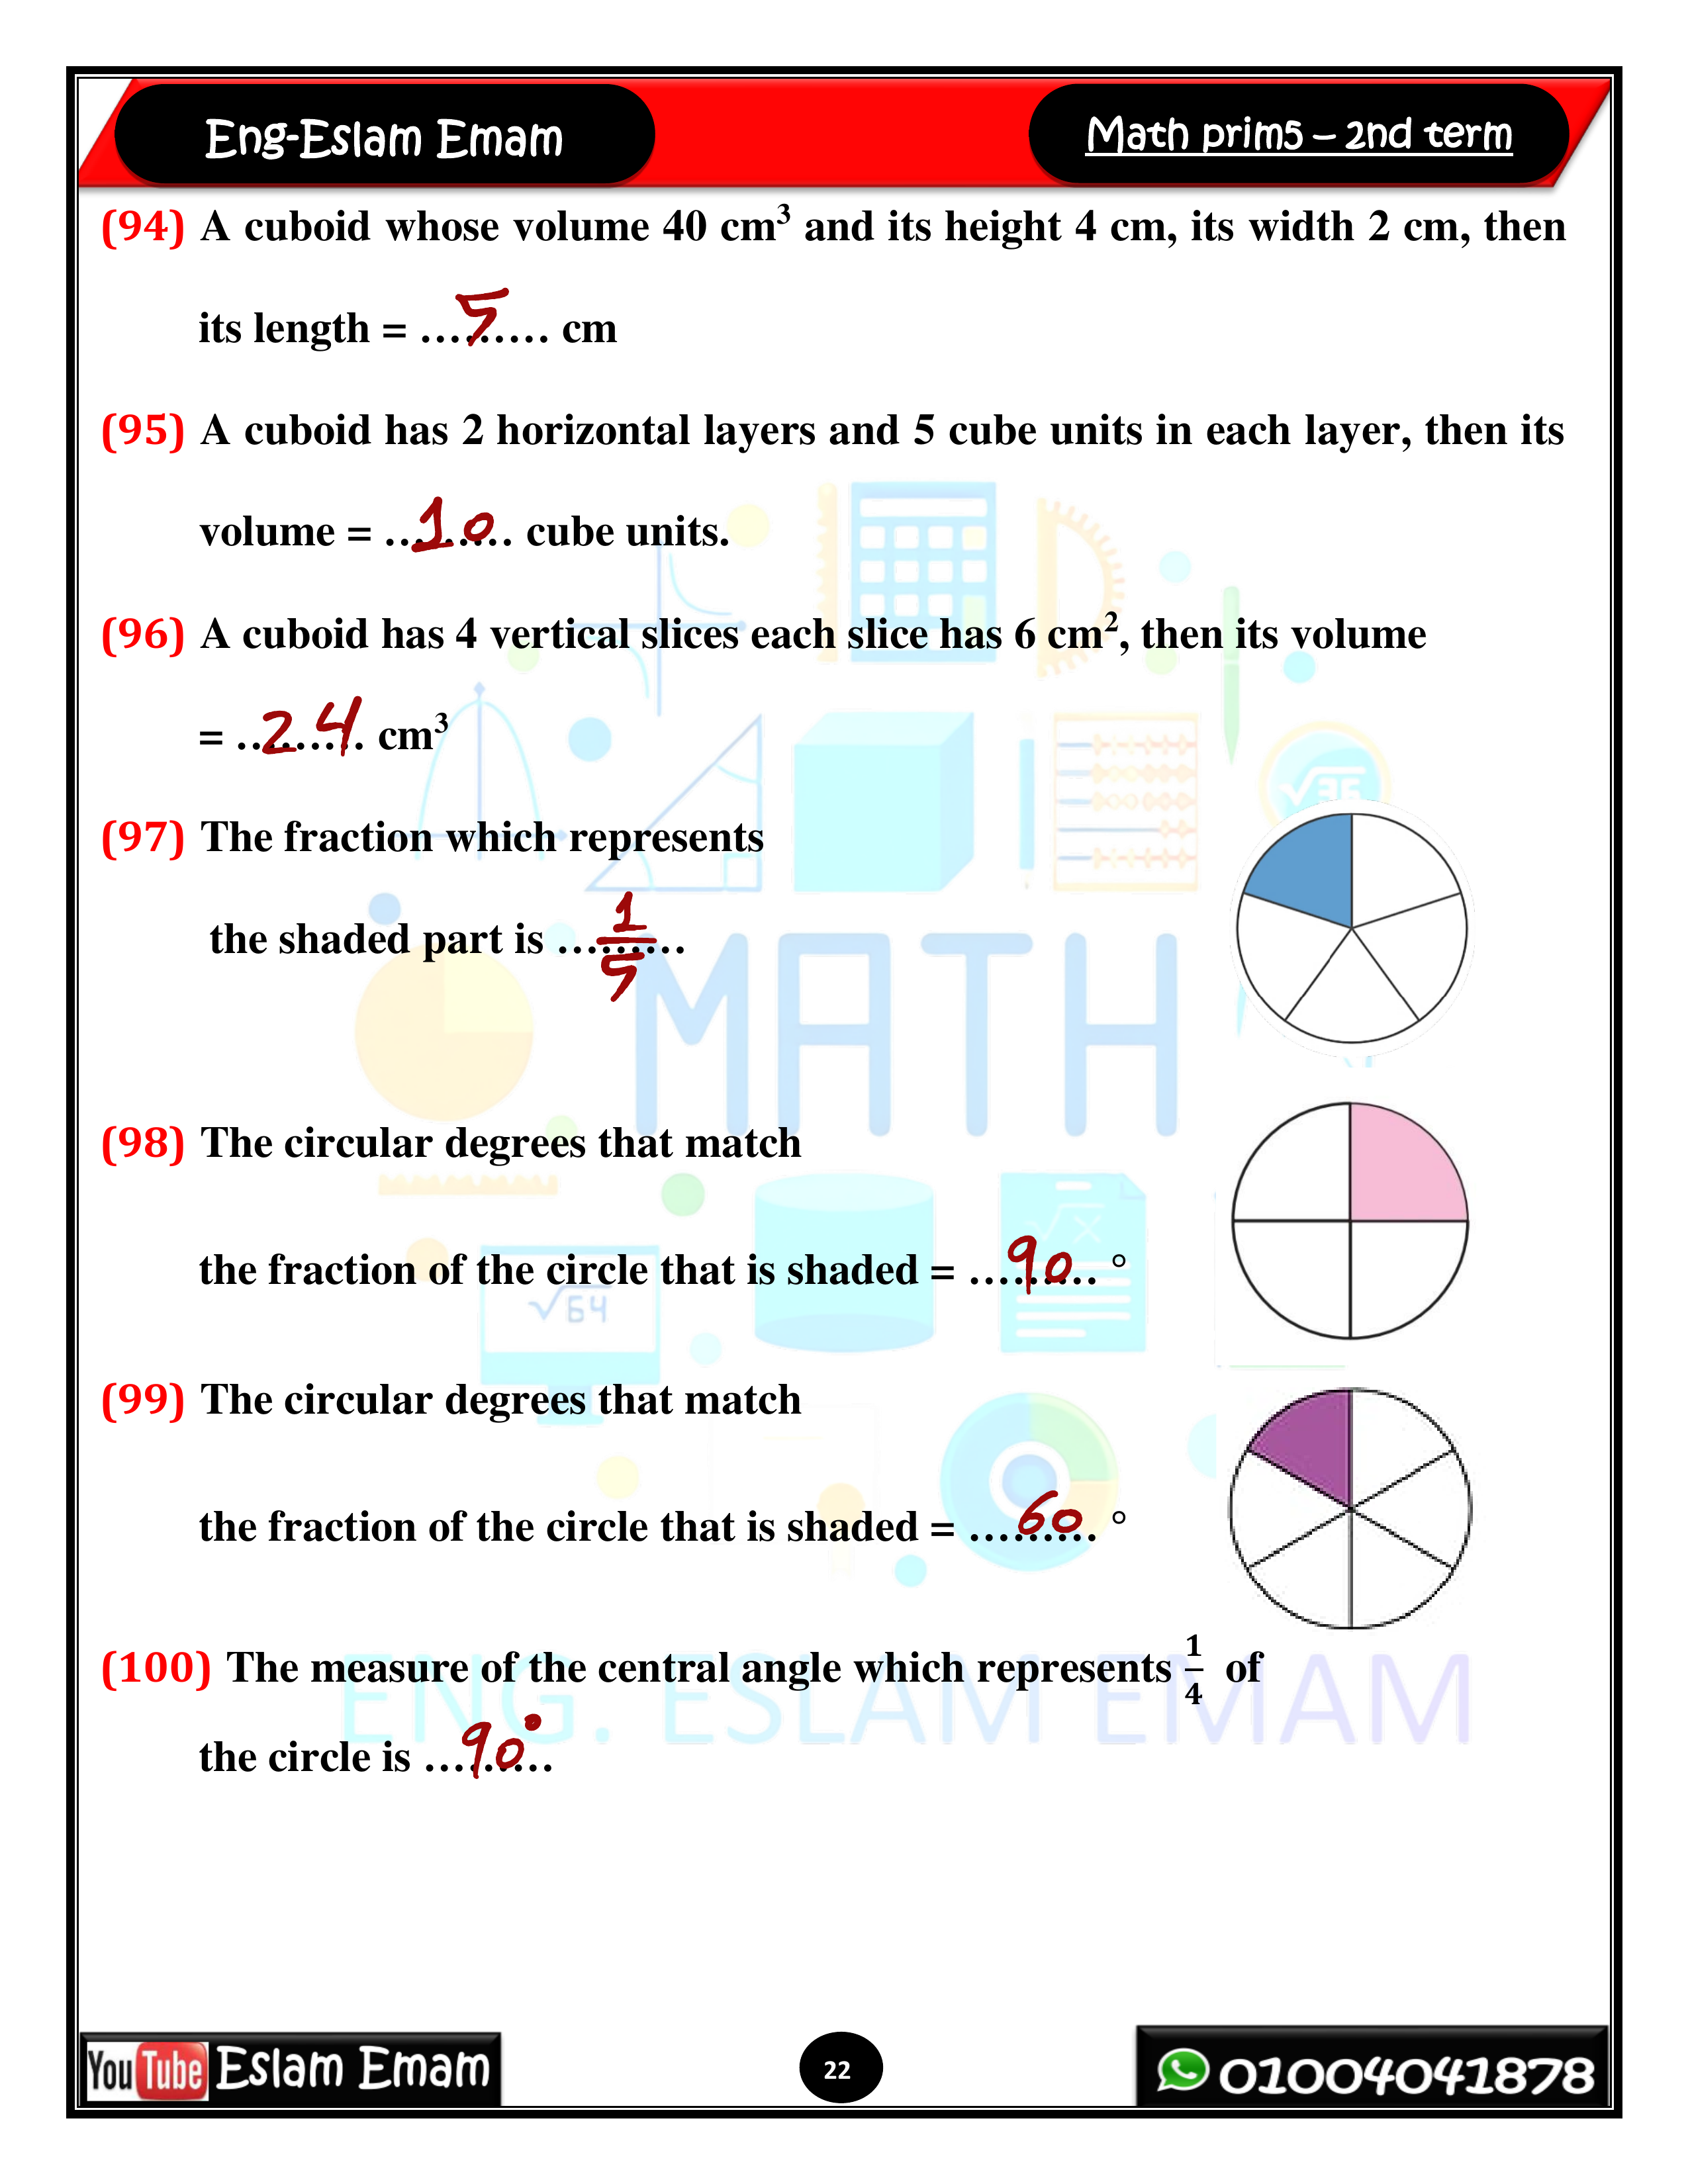 Eng-Eslam Emam
Math prim5 – 2nd term
(94) A cuboid whose volume 40 cm³ and its height 4 cm, its width 2 cm, then
its length = ...5... cm
(95) A cuboid has 2 horizontal layers and 5 cube units in each layer, then its
volume = ...10... cube units.
(96) A cuboid has 4 vertical slices each slice has 6 cm², then its volume
= ...24... cm³
√36
(97) The fraction which represents
the shaded part is ...1/5...
MATH
(98) The circular degrees that match
√x
the fraction of the circle that is shaded = ...90... °
√64
(99) The circular degrees that match
the fraction of the circle that is shaded = ...60... °
(100) The measure of the central angle which represents 1/4 of
ENG. ESLAM EMAM
the circle is ...90°...
YouTube Eslam Emam
22
01004041878